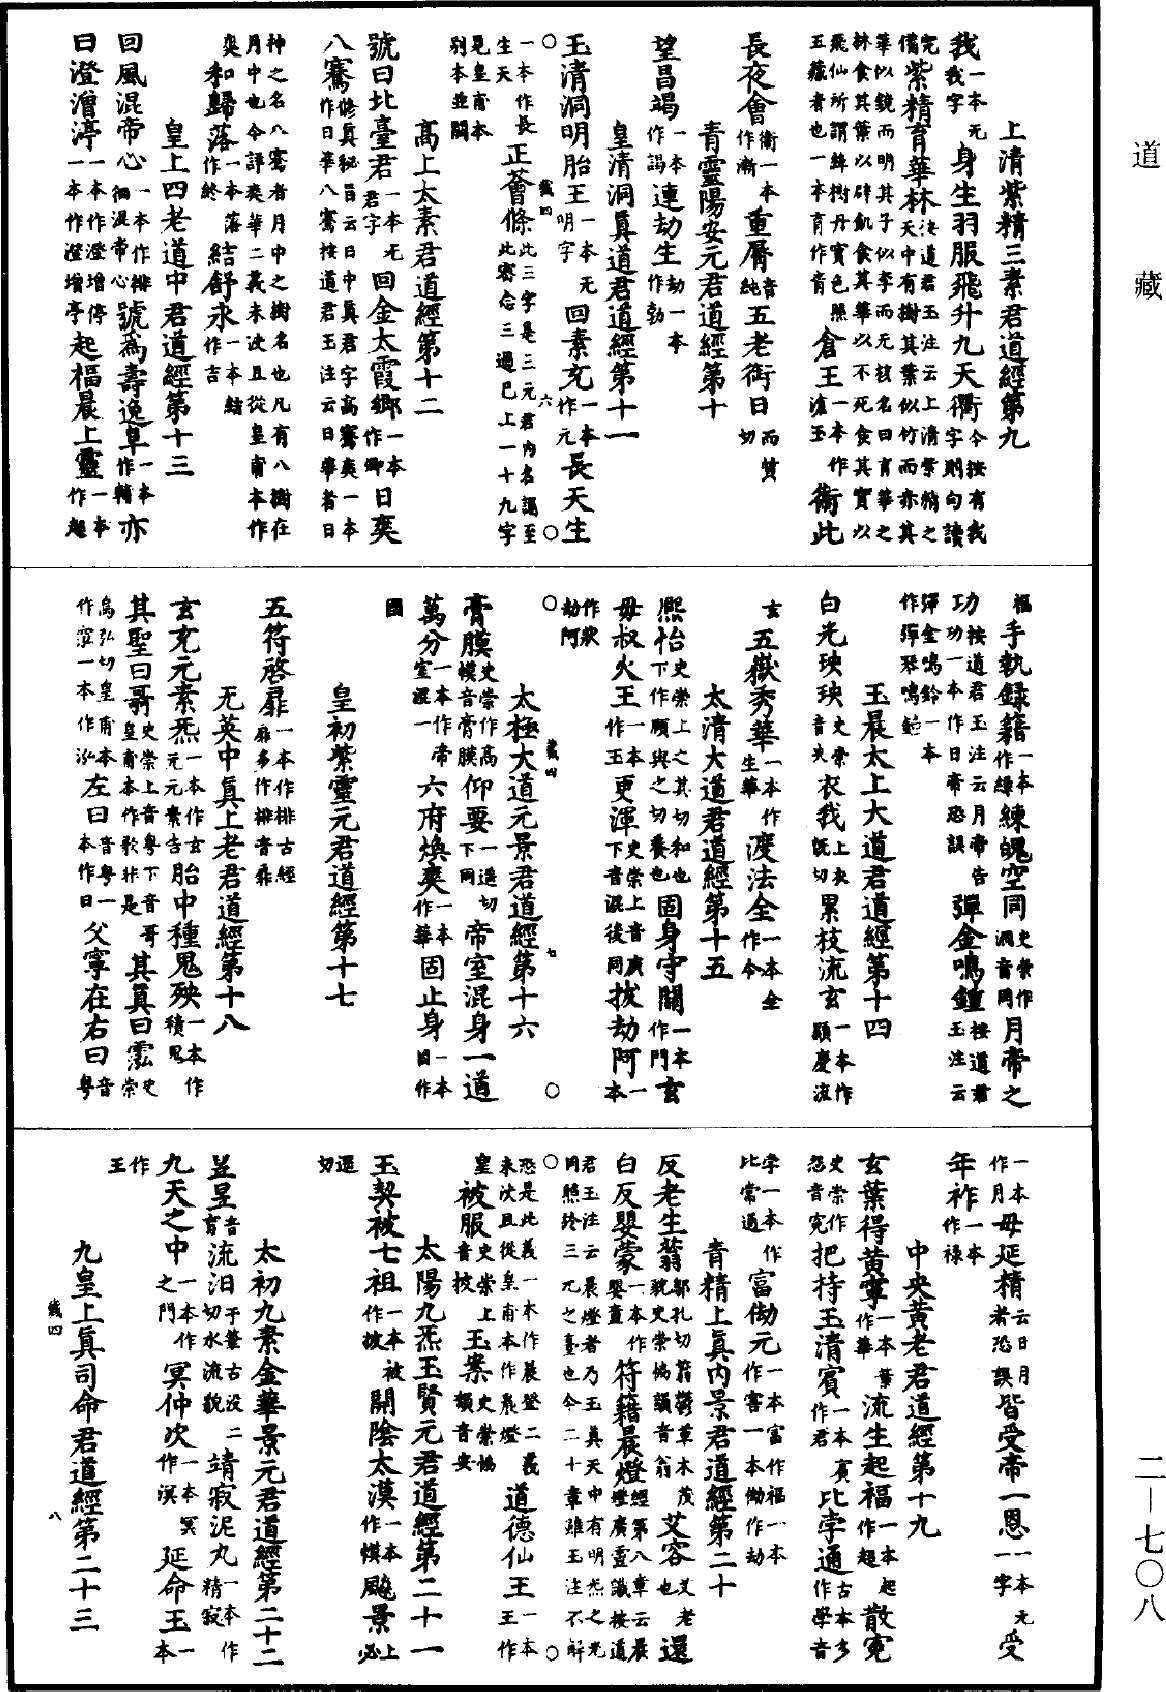 道藏
上清紫精三素君道經第九
我一本无我字身生羽服飛升九天衢今按有我字則句讀
完決道君玉注云上清紫精之
僃紫精育華林天中有樹其葉似竹而赤其
華似鏡而明其子似李而无核名曰育華之
林食其葉以辟飢食其華以不死食其實以
飛仙所謂絳樹丹實色照
五藏者也一本育作育倉王一本作滄玉衛此
長夜會衛一本作漸重脣音純五老銜日而質切
青靈陽安元君道經第十
望昌謁一本作謁連劫生劫一本作勃
皇清洞真道君道經第十一
玉清洞明胎王一本无明字回素充一本作元長天生
○ 藏四 六 ○
一本作長生天正薈條此三字是三元君內名謁至此審念三過已上一十九字
見皇甫本別本並闕
高上太素君道經第十二
號曰北臺君一本无君字回金太霞鄉一本作卿日奕
八騫修真秘旨云日中真君字高騫奕一本作日華八騫按道君玉注云日華者日
神之名八騫者月中之樹名也凡有八樹在
月中也今詳奕華二義未決且從皇甫本作
奕和歸落一本落作終結舒永一本結作吉
皇上四老道中君道經第十三
回風混帝心一本作排徊混帝心號為壽逸阜一本作精亦
曰澄澘渟一本作澄增停一本作澄增亭起福晨上靈一本作起
福手執録籍一本作綠練魄空同史崇作洞音同月帝之
功按道君玉注云月帝告功功一本作日帝恐誤彈金鳴鐘按道君玉注云
彈金鳴鈴一本作彈琴鳴鐘
玉晨太上大道君道經第十四
白光殃殃史崇音央衣我上衣既切累枝流玄一本作顯慶流
玄五嶽秀華一本作生華渡法全一本全作今
太清大道君道經第十五
熙怡史崇上之其切和也下作頤與之切養也固身守關一本作門玄
毋叔火王一本作玉更渾史崇上音廣下音混後同拔劫阿一本
作欻劫阿
○ 藏四 七 ○
太極大道元景君道經第十六
膏膜史崇作高模音膏膜仰要一遥切下同帝室混身一道
萬分一本作帝室混一六府煥奕一本作華固止身一本作日
國
皇初紫靈元君道經第十七
五符啓扉一本作排古經麻多作排音扉
无英中真上老君道經第十八
玄充元素炁一本作玄元元素告胎中種鬼殃一本作積鬼
其聖曰哥史崇上音粤下音哥皇甫本作歌非是其真曰䨎史崇音
烏弘切皇甫本作䨎一本作泓左曰音粤一本作日父寧在右曰音粤
一本作月毋延精云日月者恐誤皆受帝一恩一本无一字受
年祚一本作祿
中央黄老君道經第十九
玄葉得黄寧一本葉作華流生起福一本起作超散寃
史崇作怨音寃把持玉清賓一本賓作君比孛通古本多作學音
孛一本作比常通富衂元一本富作福一本作害一本衂作劫
青精上真内景君道經第二十
反老生蓊鄔孔切蓊欝草木茂貌史崇協韻音翁艾容艾老也還
白反嬰蒙一本作嬰童符籍晨燈經第八章云晨燈廣靈識按道
君玉注云晨燈者乃玉真天中有明炁之光
同照終三元之臺也今二十章雖玉注不解
○ ○
恐是此義一本作晨登二義
未決且從皇甫本作晨燈道德仙王一本王作
皇被服史崇上音披玉案史崇協韻音安
太陽九炁玉賢元君道經第二十一
玉契被七祖一本被作披開陰太漠一本作模飈景上必
遥切
太初九素金華景元君道經第二十二
䇐呈音育流汨于筆古没二切水流貌靖寂泥丸一本作精寂
九天之中一本作之門冥仲次一本冥作溟延命玉一本
作王
九皇上真司命君道經第二十三
藏四 八
二－七〇八